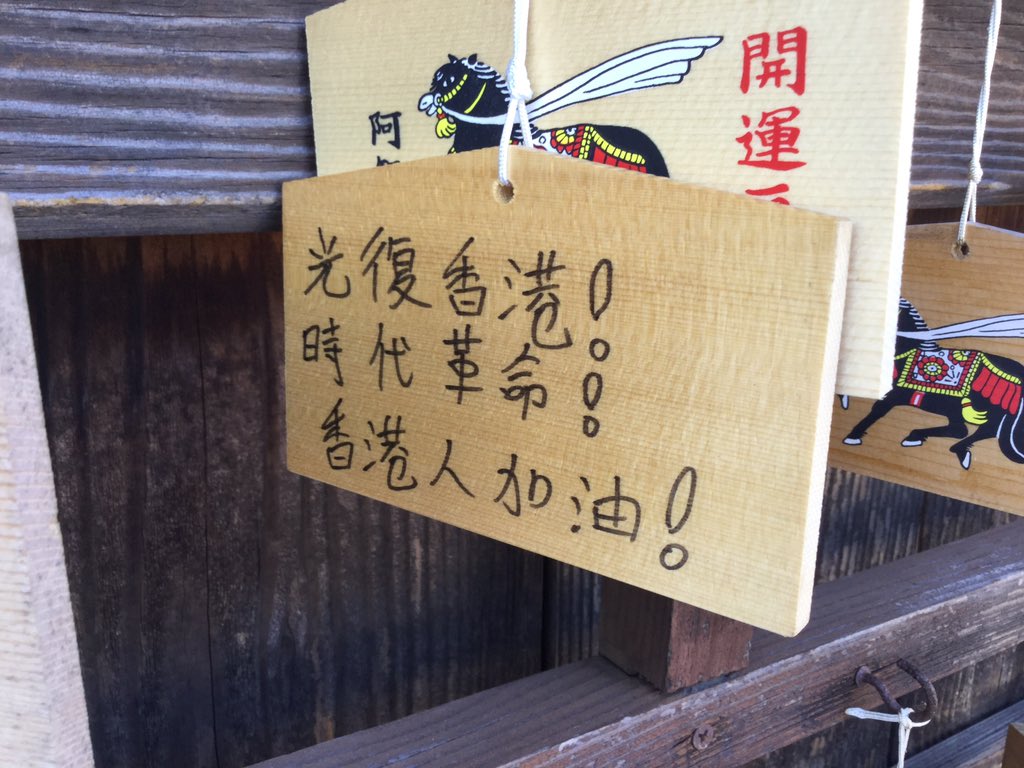 開運
阿
光復香港！
時代革命！
香港人加油！